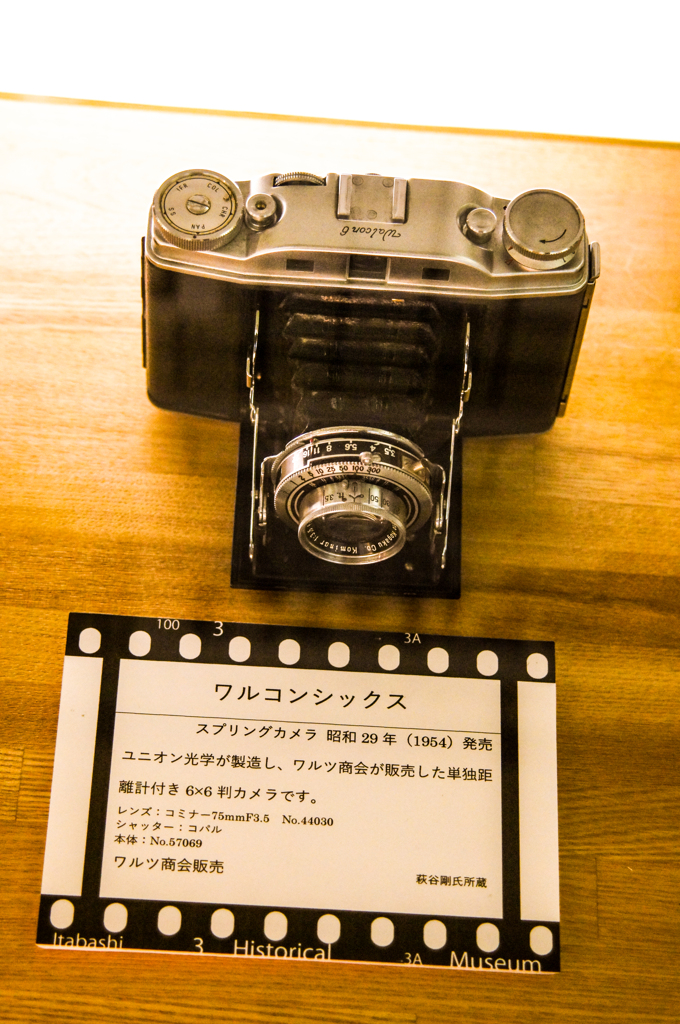 Walcon 6
100 3 3A
ワルコンシックス
スプリングカメラ 昭和 29 年（1954）発売
ユニオン光学が製造し、ワルツ商会が販売した単独距
離計付き 6×6 判カメラです。
レンズ：コミナー75mmF3.5 No.44030
シャッター：コパル
本体：No.57069
ワルツ商会販売
萩谷剛氏所蔵
Itabashi 3 Historical 3A Museum